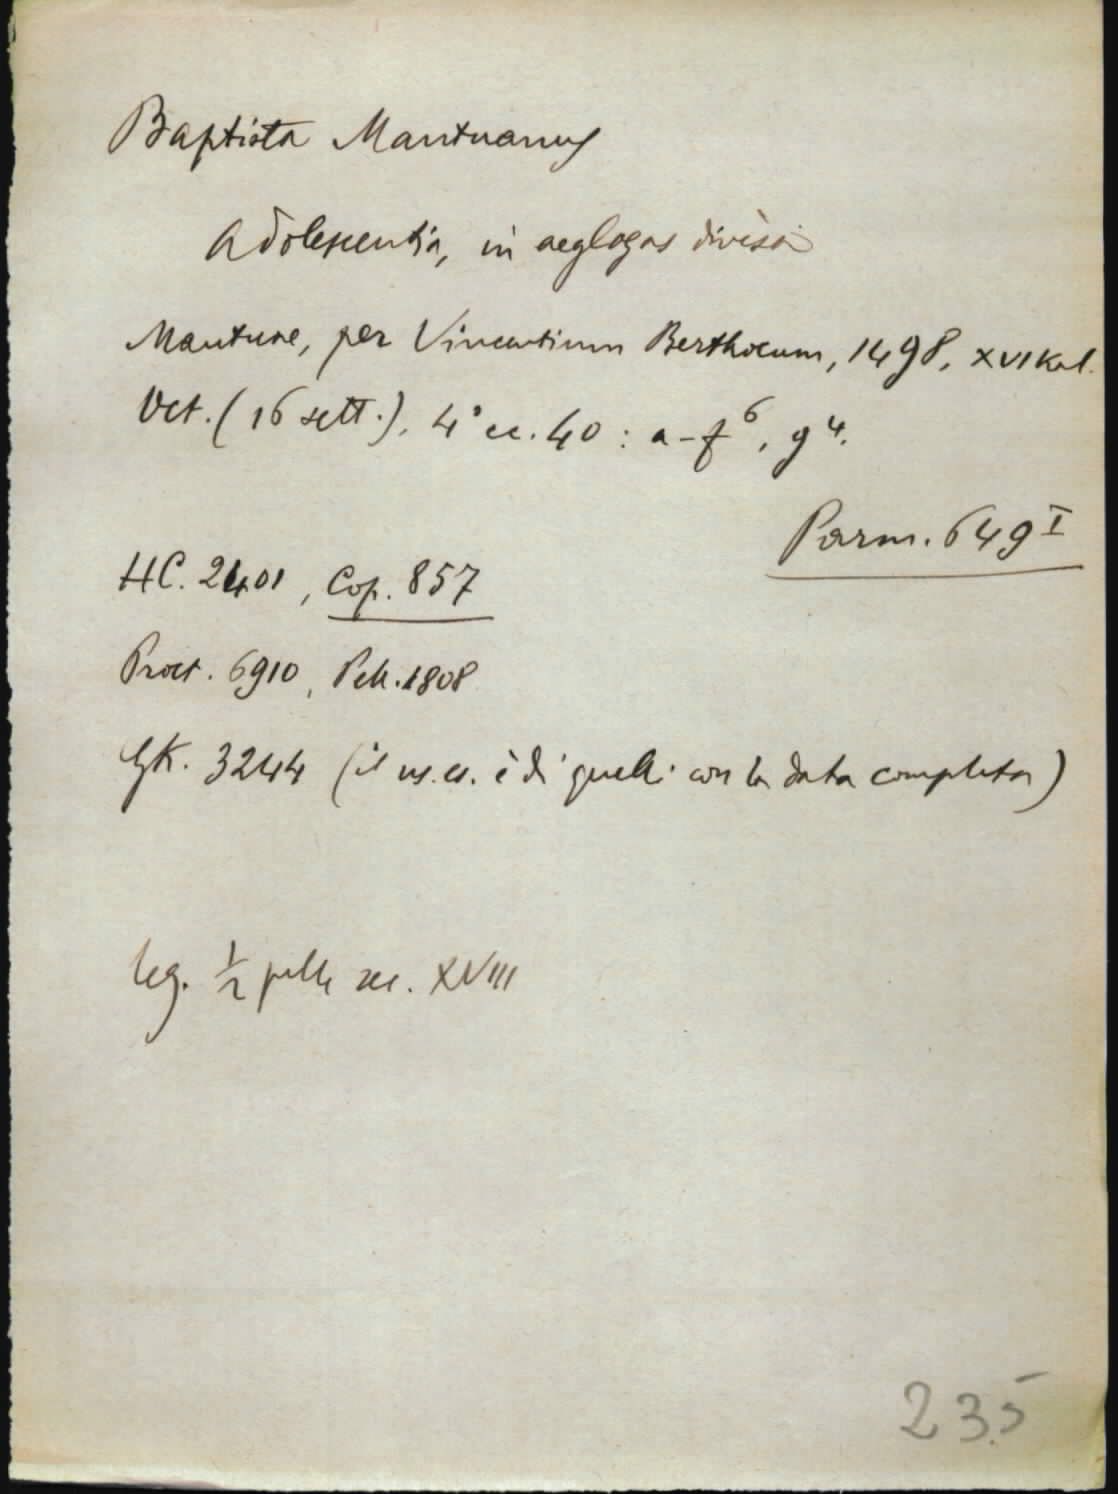 Baptista Mantuanus
Adolescentia, in aeglogas divisa
Mantuae, per Vincentium Berthocum, 1498, XVI Kal.
Oct. (16 sett.), 4° cc. 40 : a-f⁶, g⁴.
Parm. 649ᴵ
HC. 2401, Cop. 857
Proct. 6910, Pell. 1808
GK. 3244 (il ns. es. è di quelli con la data completa)
leg. ½ pelle sec. XVIII
235